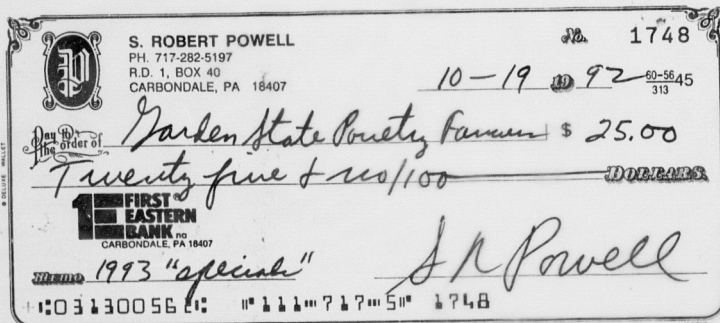 S. ROBERT POWELL
PH. 717-282-5197
R.D. 1, BOX 40
CARBONDALE, PA 18407
No. 1748
10-19 19 92 60-56 45
313
Pay to the order of Garden State Poultry Fanciers $ 25.00
Twenty five & no/100 DOLLARS
1E FIRST EASTERN BANK na
CARBONDALE, PA 18407
Memo 1993 "specials" S R Powell
⑆031300562⑆ ⑈111⑉717⑉5⑈ 1748
© DELUXE WALLET